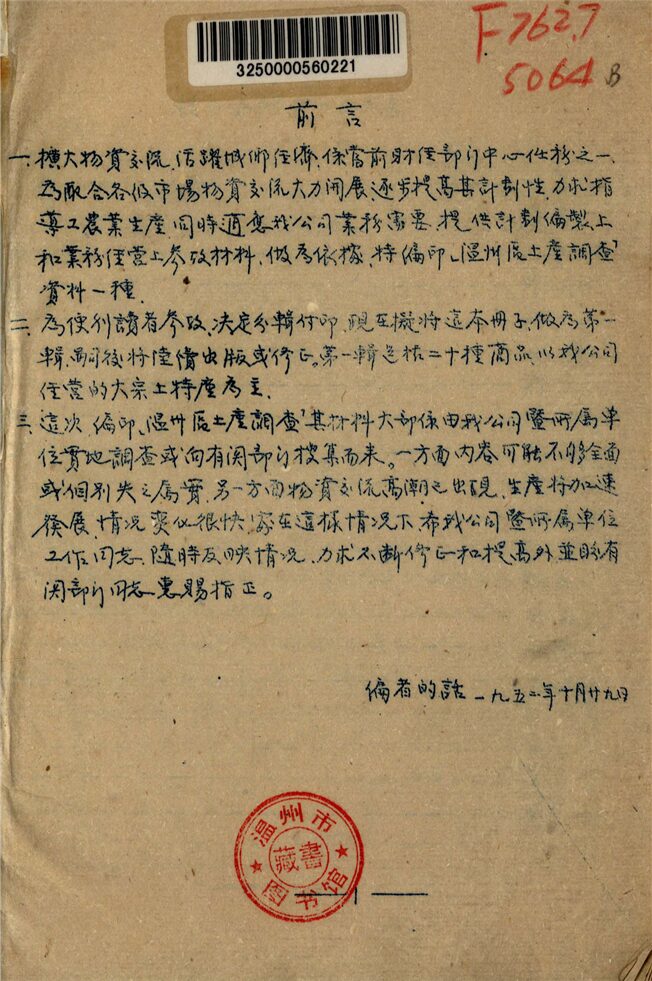 3250000560221
F762.7
5064 B
前言
一、擴大物資交流,活躍城鄉经濟,係當前财经部门中心任務之一、
為配合各级市場物資交流大力開展,逐步提高其計劃性,力求指
導工農業生產,同時適應我公司業務需要,提供計劃編製上
和業務经营上参攷材料、做為依據,特編印「温州區土產調查」
資料一種、
二、為便利讀者参攷,决定分輯付印,現在擬將這本冊子,做為第一
輯,嗣後將陸續出版或修正。第一輯包括二十種商品,以我公司
任营的大宗土特產為主、
三、這次、編印「温州區土產調查」其材料大部係由我公司暨所屬單
位實地調查或向有関部门搜集而来。一方面内容可能不够全面
或個别失之為實,另一方面物資交流高潮已出現,生產將加速
發展,情况变化很快,在這樣情况下,希我公司暨所屬单位
工作同志,隨時反映情况,力求不断修正和提高外,並盼有
関部门同志惠賜指正。
编者的話 一九五二年十月廿九日
温州市
藏書
图书馆
1